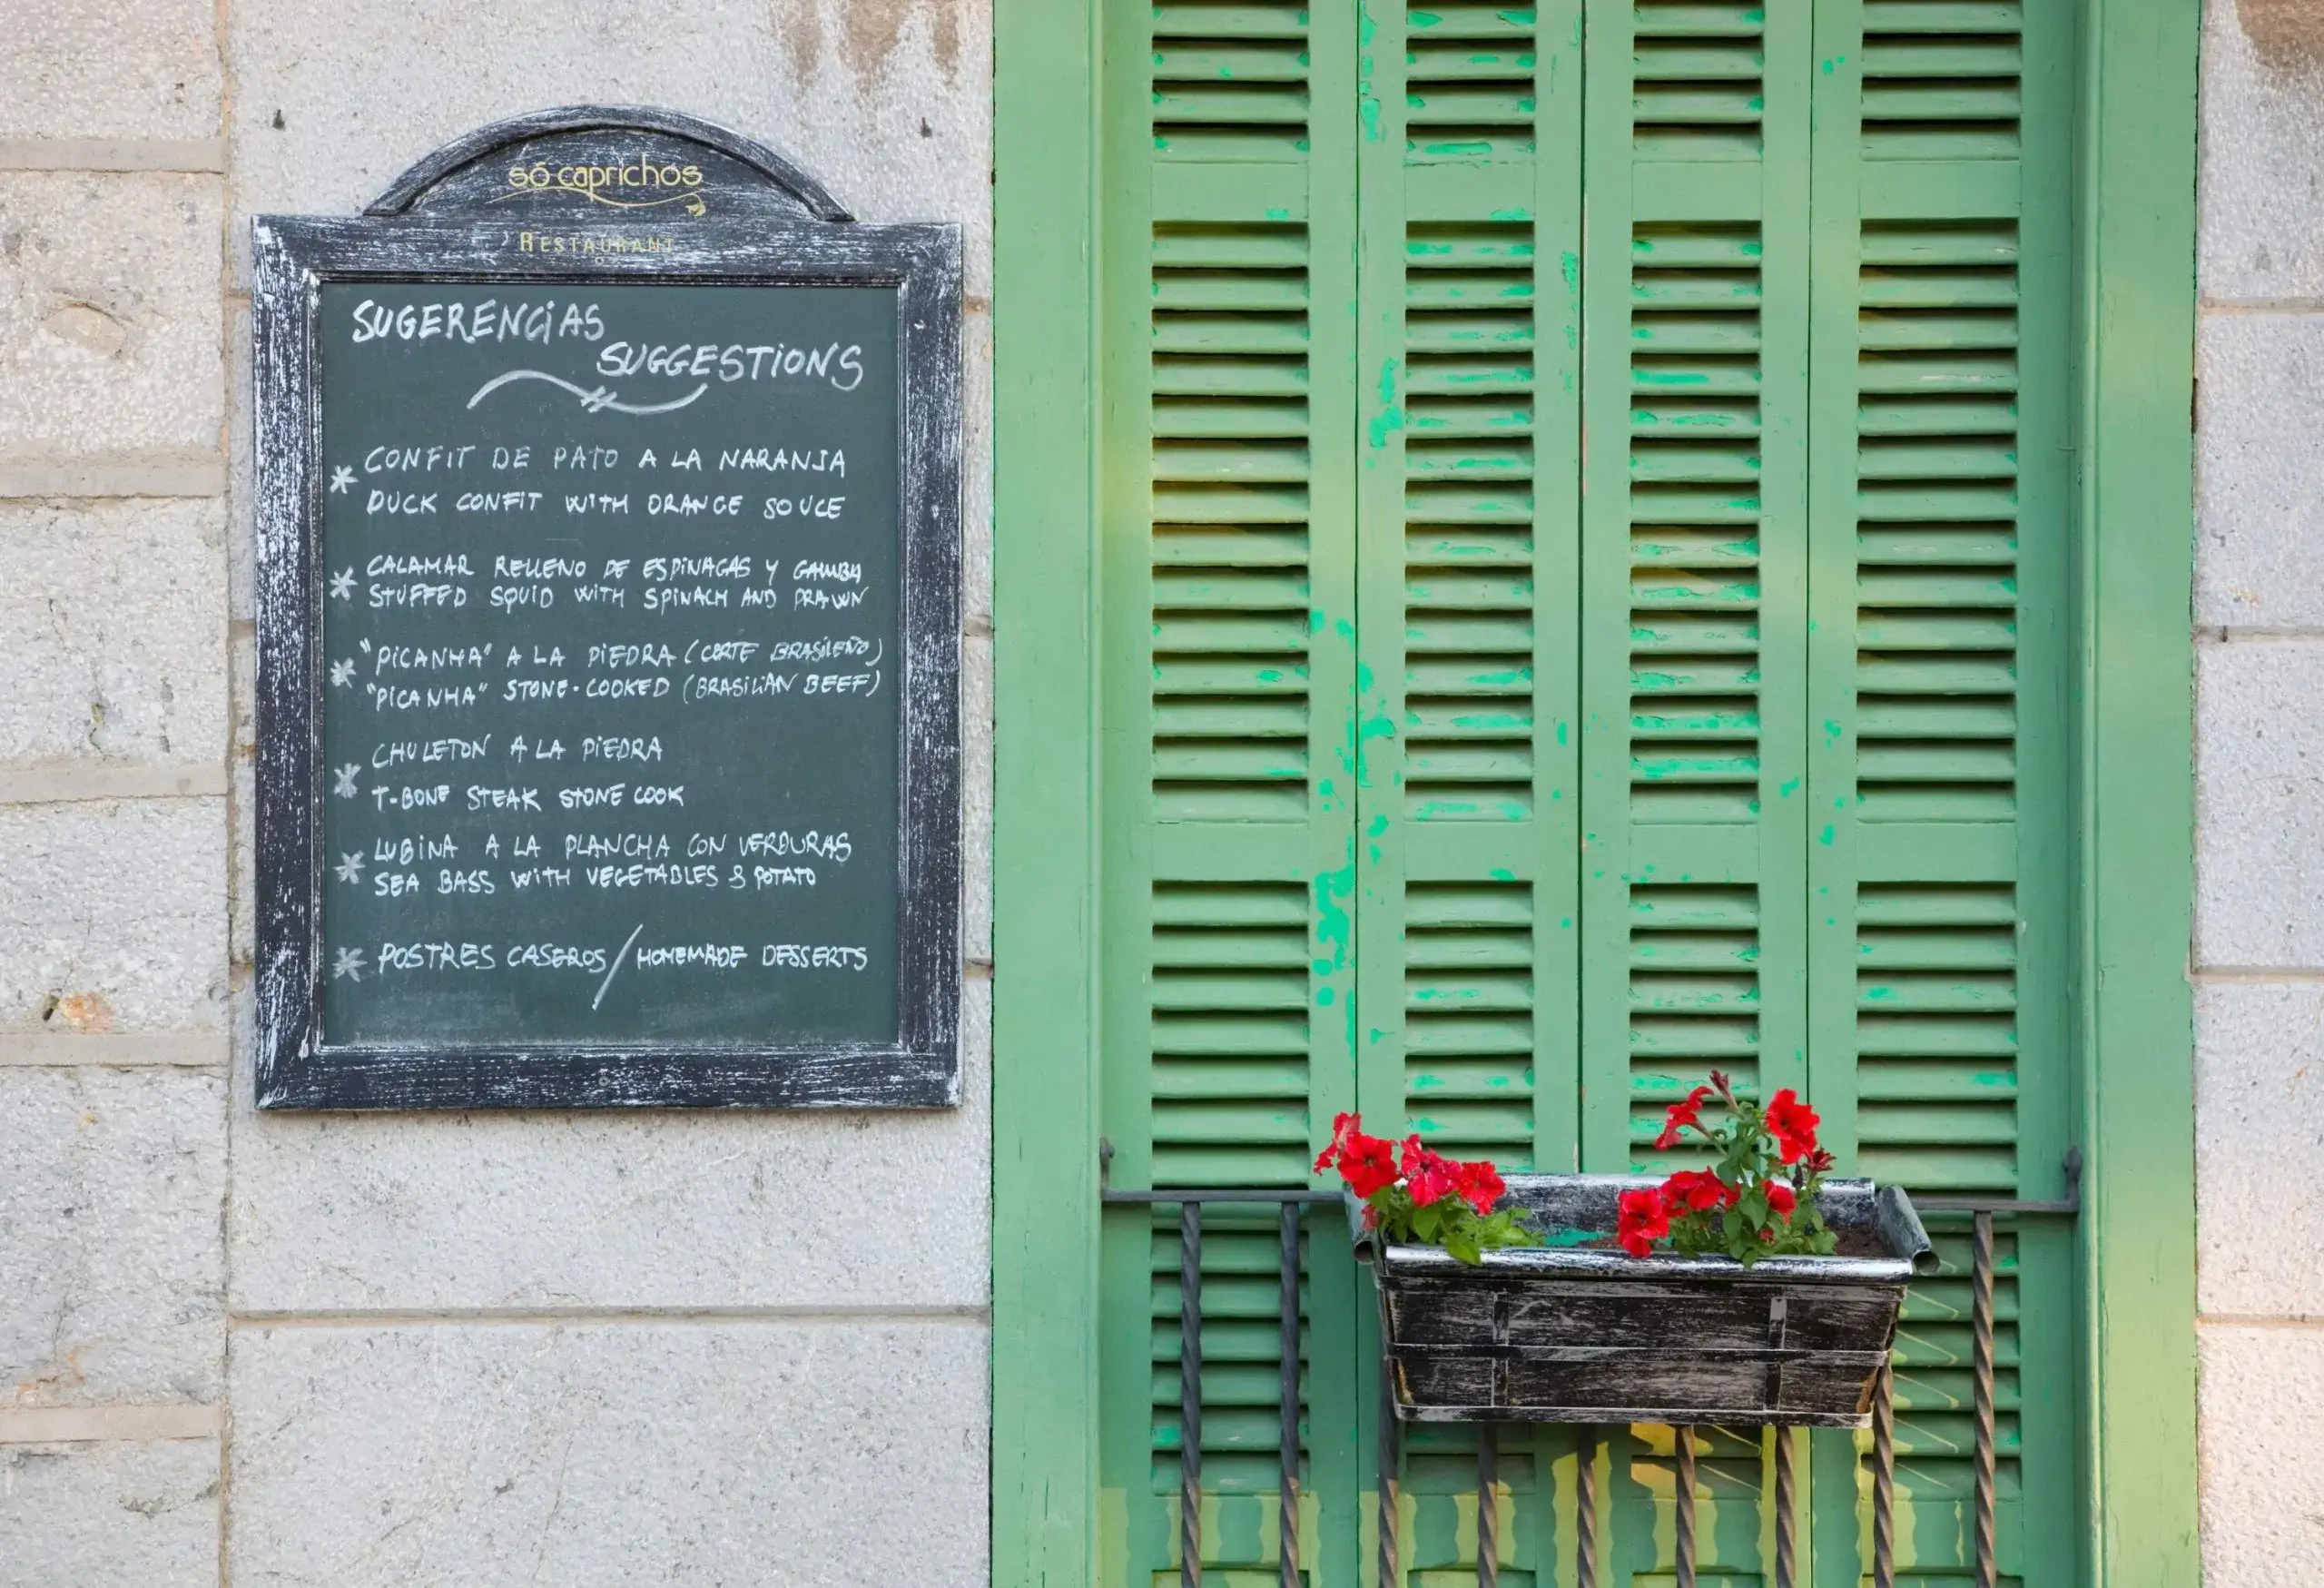 só caprichos
RESTAURANT
SUGERENCiAS
SUGGESTiONS
CONFIT DE PATO A LA NARANJA
DUCK CONFIT WITH ORANGE SOUCE
CALAMAR RELLENO DE ESPINAGAS Y GAMBA
STUFFED SQUID WITH SPINACH AND PRAWN
"PICANHA" A LA PIEDRA (CORTE BRASILEÑO)
"PICANHA" STONE-COOKED (BRASILIAN BEEF)
CHULETON A LA PIEDRA
T-BONE STEAK STONE COOK
LUBINA A LA PLANCHA CON VERDURAS
SEA BASS WITH VEGETABLES & POTATO
POSTRES CASEROS/HOMEMADE DESSERTS